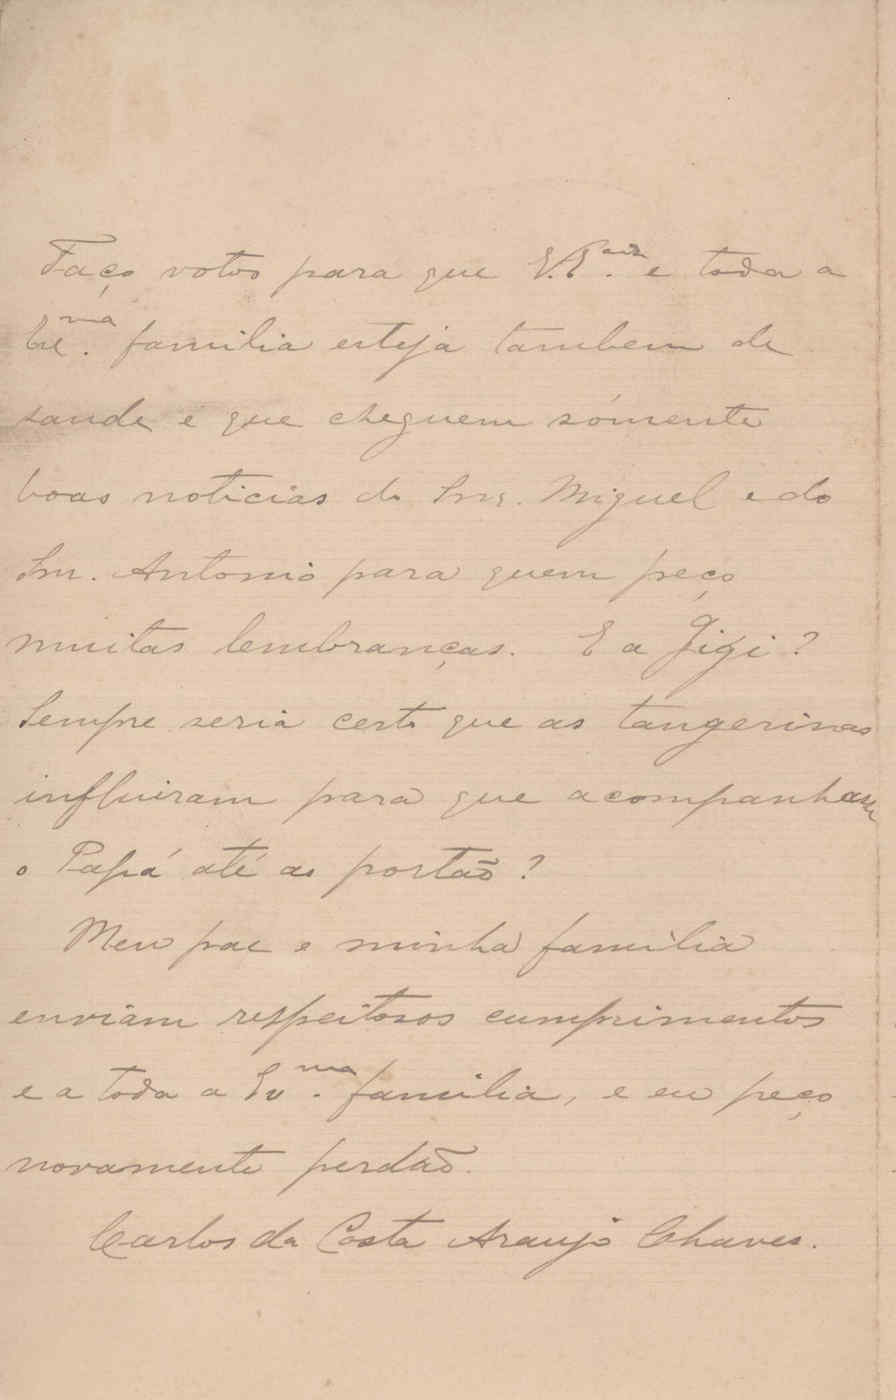 Faço votos para que V.Ex.cia e toda a
Ex.ma familia esteja tambem de
saude e que cheguem sómente
boas noticias do Snr. Miguel e do
Snr. Antonio para quem peço
muitas lembranças. E a Gigi?
Sempre seria certo que as tangerinas
influiram para que acompanhasse
o Papá até ao portão?
Meu pae e minha familia
enviam respeitosos cumprimentos
e a toda a Ex.ma familia, e eu peço
novamente perdão.
Carlos da Costa Araujo Chaves.